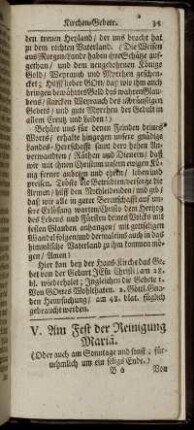 Kirchen-Gebete. 35
den treuen Heyland/ der uns bracht hat
zu dem rechten Vaterland. (Die Weisen
aus Morgen-Lande haben ihre Schätze auf-
gethan/ und dem neugebohrnen Könige
Gold/ Weyrauch und Myrrhen geschen-
cket; Hilff lieber GOtt/ daß wir ihm auch
bringen bewährtes Gold des wahren Glau-
bens/ starcken Weyrauch des
Gebets/ und Myrrhen der Gedult in
allem Creutz und Leiden!)
Behüte uns für denen Feinden deines
Worts/ erhalte hingegen unsere gnädige
Landes-Herrschafft samt dero hohen An-
verwandten/ Räthen und Dienern/ daß
wir mit ihnen Christum unsern ewigen Kö-
nig ferner anbeten und ehren/ loben und
preisen. Tröste die Betrübten/ versorge die
Armen/ hilff den Nothleidenden/ und gib
daß wir alle in guter Bereitschafft auf un-
sere Erlösung warten/ Christo dem Hertzog
des Lebens und Fürsten deines Volcks mit
festen Glauben anhangen/ mit gottseligen
Wandel folgen und dermaleins auch in das
himmlische Vaterland zu ihm kommen mö-
gen/ Amen!
Hier kan bey der Haus-Kirche das Ge-
bet von der Geburt JEsu Christi/ am 28.
bl. wiederholet; Ingleichen die Gebete 1.
Von GOttes Wohlthaten. 2. Göttl. Gna-
den Heimsuchung/ am 48. blat. füglich
gebraucht werden.
V. Am Fest der Reinigung
Mariä.
(Oder auch am Sonntage und sonst/ für-
nehmlich um ein seliges Ende.)
Von